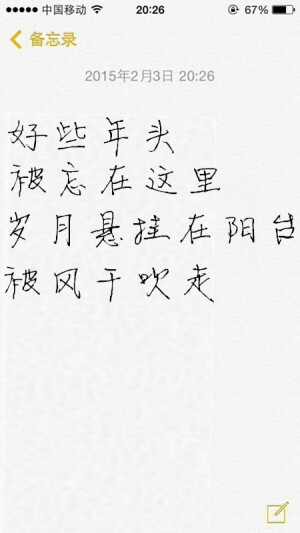 中国移动 20:26 67%
备忘录
2015年2月3日 20:26
好些年头
被忘在这里
岁月悬挂在阳台
被风干吹走